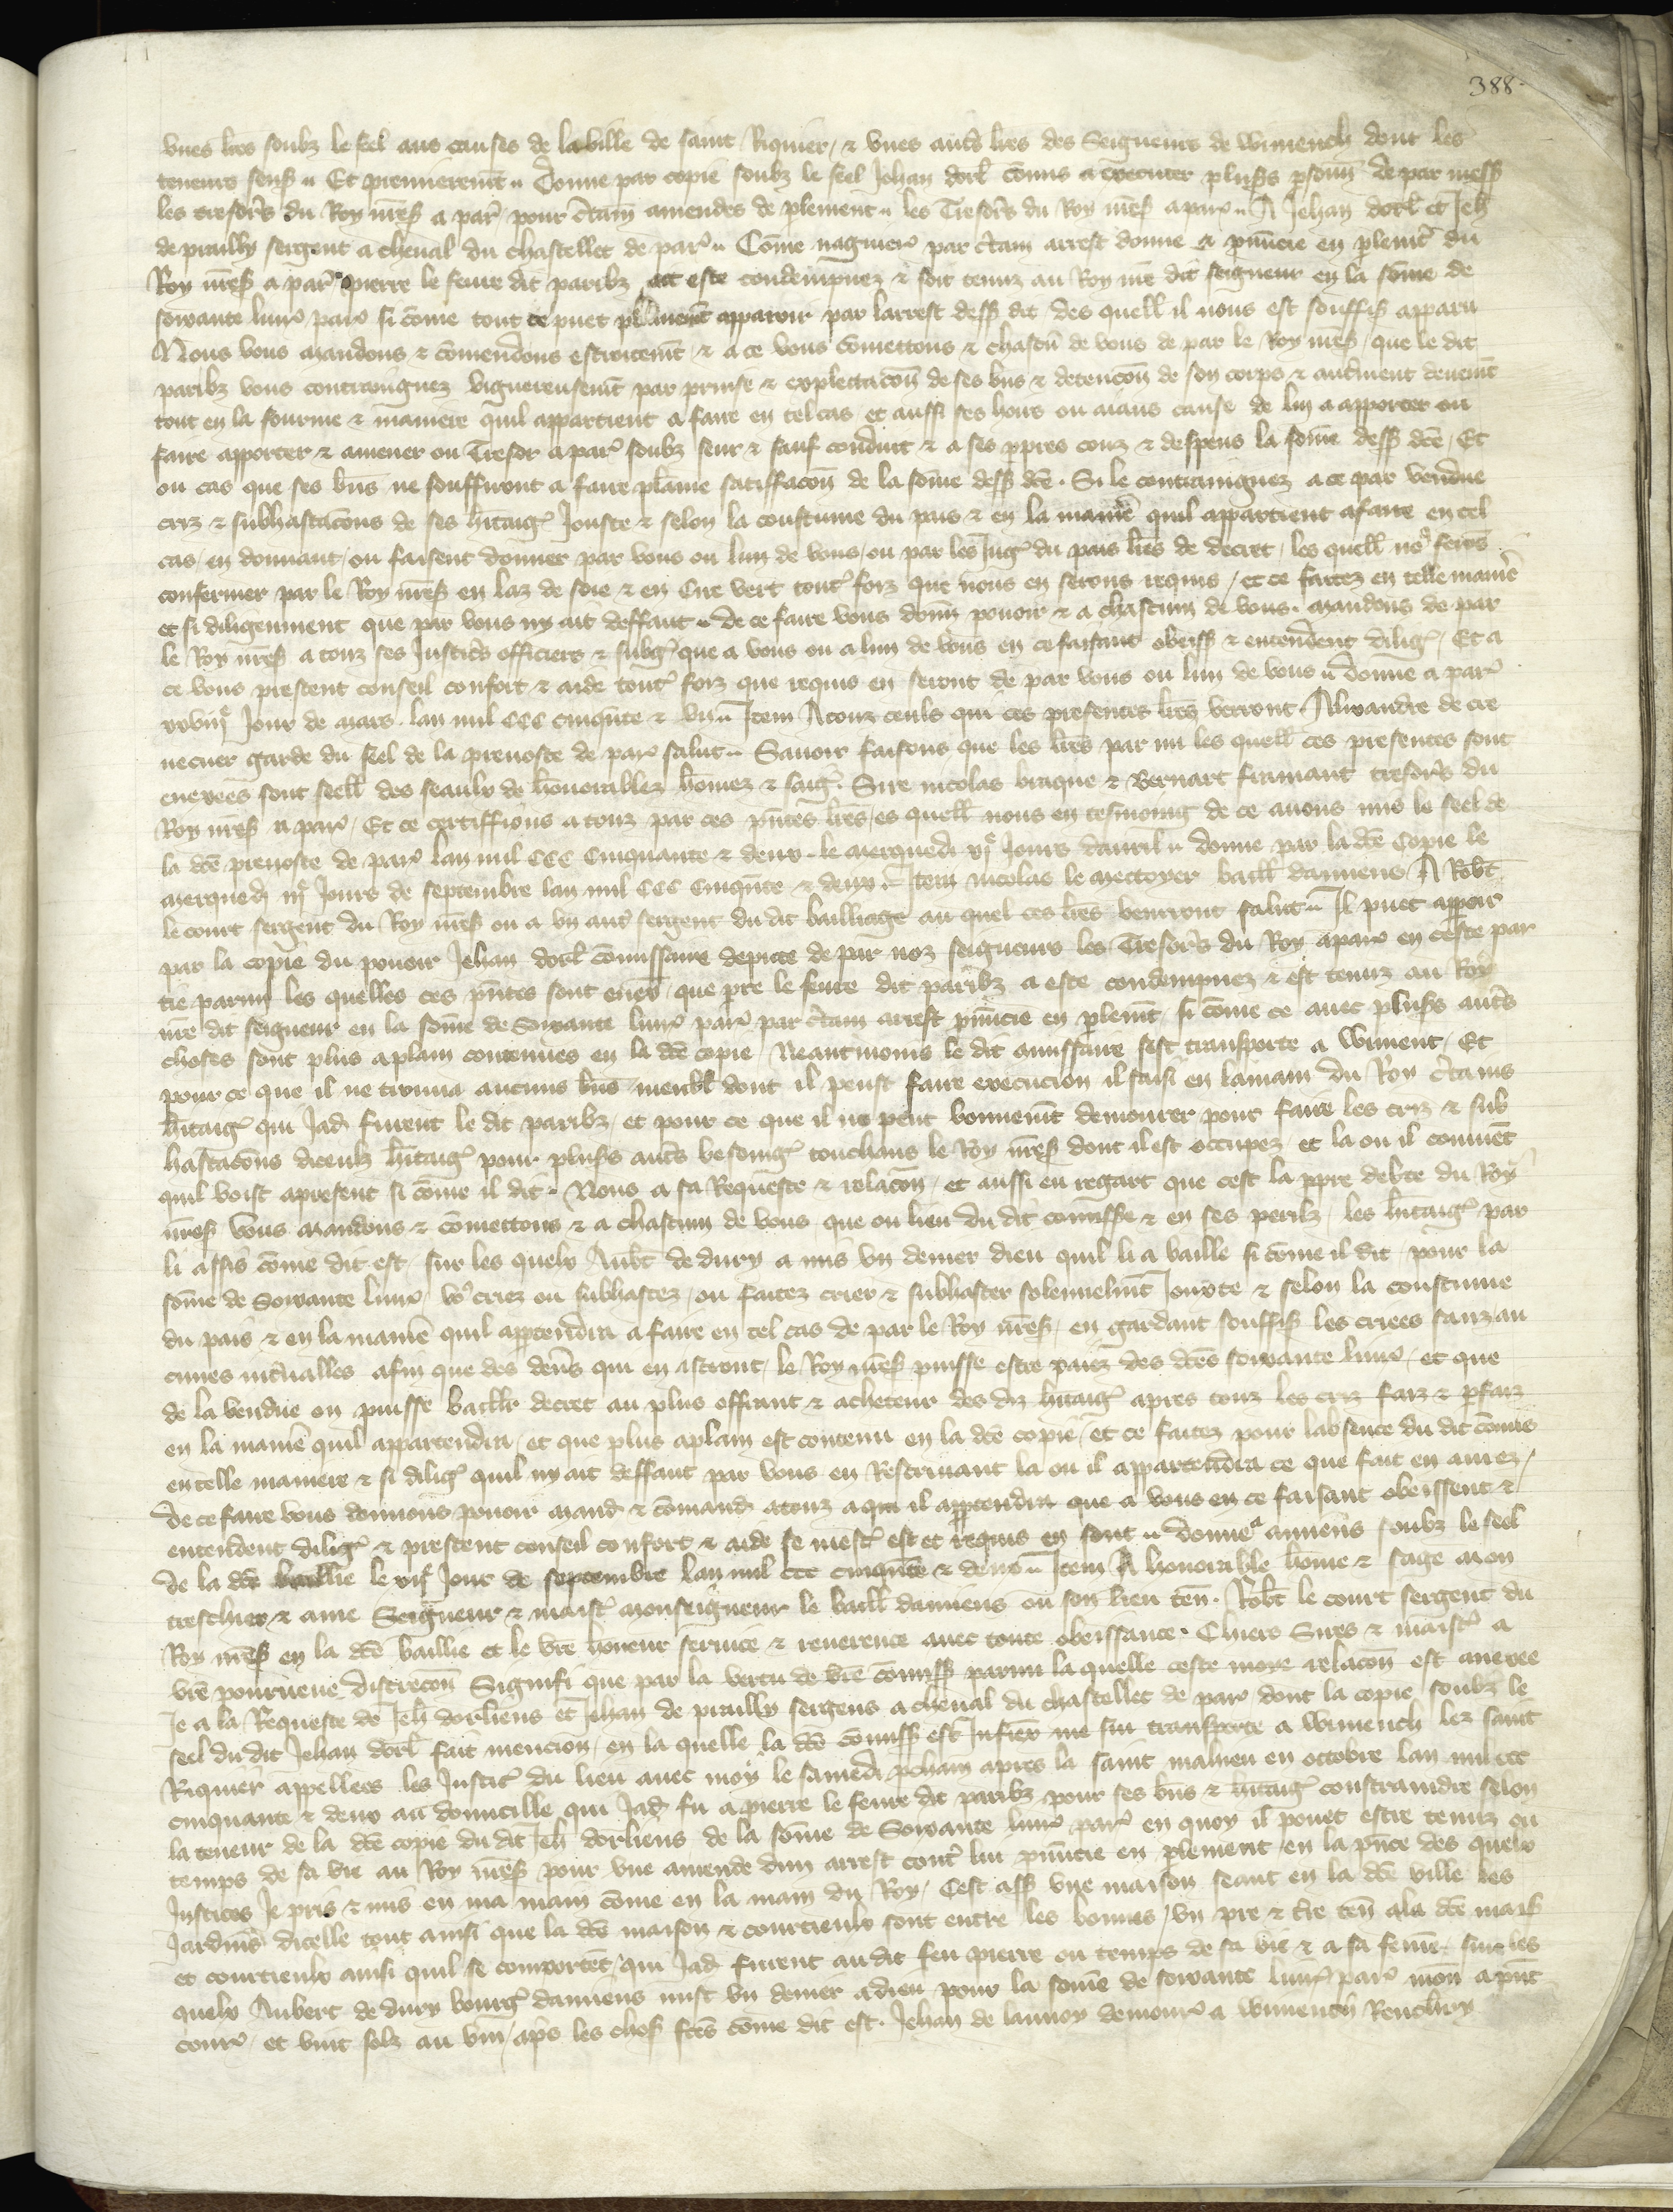 388
unes lres soubz le seel aus causes de la ville de saint Riquier, & unes autres lres des Seigneurs de Wimench dont les
teneurs sens. Et premierement. Donne par copie soubz le seel Jehan dorl comis a executer plusrs psonn de par mess
les tresors du Roy nres a par pour ctain amendes de plement. les Tresors du Roy nres a par. A Jehan dorl et Jeh
de prailly sergent a cheval du chastellet de par. Come naguere par ctain arrest donne & pnuncie en plemt du
Roy nres a par pierre le fevre dit paribz ait este condempnez & soit tenuz au Roy nre dit seigneur en la some de
soixante livr par si come tout ce puet plainent apparoir par larrest dess dit des quell il nous est souffis apparu
Nous vous mandons & comendons estroitemt & a ce vous comettons & chascu de vous de par le Roy nres que le dit
paribz vous contraingnez viguereusemt par prinse & explectacon de ses bns & detencon de son corps & autrment deuemt
tout en la fourme & maniere quil appartient a faire en tel cas et aussi ses hoirs ou aians cause de lui a apporter ou
faire apporter & amener ou Tresor a par soubz seur & sauf conduit & a ses ppres couz & despens la some dess dce. Et
ou cas que ses bns ne souffiront a faire plaine satiffacon de la some dess dce. Si le contraingnez a ce par vendue
criz & subhastacons de ses hitaig Jouste & selon la coustume du pais & en la manie quil appartient a faire en tel
cas, en donnant, ou faisent donner par vous ou lun de vous, ou par les Jug du pais lres de decret, les quell no ferons
confermer par le Roy nres en laz de soie & en Cire vert tout foiz que nous en serons requis, et ce faitez en telle manie
et si diligenment que par vous ny ait deffaut. De ce faire vous donn pouoir & a chascun de vous. mandons de par
le Roy nres a touz ses Justics officiers & subg que a vous ou a lun de vous en ce faisant obeiss & entendent dilig, Et a
ce vous prestent conseil confort & aide tout foiz que requis en seront de par vous ou lun de vous. donne a par
xxviij Jour de mars. lan mil CCC cinqnte & un. Item A touz ceuls qui ces presentes lres verront. Alixandre de cre
vecuer garde du seel de la prevoste de par salut. Savoir faisons que les lres par mi les quell ces presentes sont
enexees sont seell des seaulx de honorablez homez & saig. Sire nicolas braque & Bernart fremant tresors du
Roy nres a par, Et ce certiffions a touz par ces pntes lres, es quell nous en tesmoing de ce avons mis le seel de
la dce prevoste de par lan mil CCC Cinquante & deux. le merquedi xj Jours davril. donne par la dce Copie le
merqued iij Jours de septembre lan mil CCC Cinqnte & deux. Item nicolas le mettoyer baill damiens A Robt
le court sergent du Roy nres ou a un aut sergent du dit bailliage au quel ces lres venrront salut. Il puet appoir
par la copie du pouoir Jehan dorl comissaire depute de par noz seigneurs les Tresors du Roy a par en ceste par
tie parmi les quelles ces pntes sont enex, que pre le fevre dit paribz a este condempnez & est tenuz au Roy
nre dit seigneur en la some de Soixante livr par par ctain arrest pnuncie en plemt, si come ce avec plusrs autrs
choses sont plus aplain contenues en la dce copie. Neantmoins le dit comissaire sest transporte a Wiment, Et
pour ce que il ne trouva aucuns bns meubl dont il peust faire execucion il saisi en la main du Roy ctains
hitaig qui Jad furent le dit paribz, et pour ce que il ne peut bonnemt demourer pour faire les criz & sub
hastacons diceulz hitaig pour plusrs autrs besoing touchans le Roy nres dont il est occupez et la ou il convient
quil voist apresent si come il dit. Nous a sa Requeste & relacon, et aussi eu regart que cest la ppre debte du Roy
nres vous mandons & comettons & a chascun de vous que ou lieu du dit comisse & en ses perilz, les hitaig par
li assis come dit est, sur les quelx Aubt de dury a mis un denier dieu quil li a baille si come il dit, pour la
some de Soixante livr, vo criez ou subhastez, ou faitez crier & subhaster solennelmt Jouxte & selon la coustume
du pais & en la manie quil apptendra a faire en tel cas de par le Roy nres, en gardant souffis les criees sanz au
cunes intvalles afin que des dens qui en istront, le Roy nres puisse estre paiez des dces soixante livr, et que
de la vendue on puisse baillr decret au plus offrant & acheteur des diz hitaig apres touz les criz faiz & pfaiz
en la manie quil appartendra, et que plus aplain est contenu en la dce copie, et ce faitez pour labsence du dit comis
en telle maniere & si dilig quil ny ait deffaut par vous en Rescrivant la ou il appartendra ce que fait en aurez,
De ce faire vous donnons pouoir mand & comand a touz a qui il apptendra que a vous en ce faisant obeissent &
entendent dilig & prestent conseil confort & aide se mest est et requis en sont. donne a amiens soubz le seel
de la dce baillie le vij Jour de septembre lan mil ccc cinqnte & deux. Item A honorable home & sage mon
treschier & ame Seigneur & maist monseigneur le baill damiens ou son lieu ten. Robt le court sergent du
Roy nres en la dce baillie et le vre honeur service & reverence avec toute obeissance. Chiers Sires & maist a
vre pourveue discrecon Signifi que par la vertu de vre comiss parmi la quelle ceste moye relacon est anexee
Je a la Requeste de Jeh dorliens et Jehan de prailly sergens a cheval du chastellet de par dont la copie soubz le
seel du dit Jehan dorl fait mencion, en la quelle la dce comiss est Infixe me sui transporte a Wimench lez saint
Riquier appellees les Justic du lieu avec moy le samedi pchain apres la saint mahieu en octobre lan mil ccc
cinquante & deux au domicille qui Jad fu a pierre le fevre dit paribz pour ses bns & hitaig constraindre selon
la teneur de la dce copie du dit Jeh dorliens de la some de Soixante livr par en quoy il pouet estre tenuz ou
temps de sa vie au Roy nres pour une amende dun arrest contr lui pnuncie en plement en la pnce des quelx
Justices Je pris & mis en ma main come en la main du Roy, Cest ass une maison seant en la dce ville les
Jardins dicelle tout ainsi que la dce maison & courtieulx sont entre les bonnes, un pre & tre ten a la dce mais
et courtieulx ainsi quil se comportet, qui Jad furent au dit feu pierre ou temps de sa vie & a sa feme, sur les
quelx Aubert de dury bourg damiens mist un denier a dieu pour la some de soixante livr par mon a pnt
cour, et vint solz au vin, aps les chos fces come dit est. Jehan de lannoy demour a Wimench Renchery